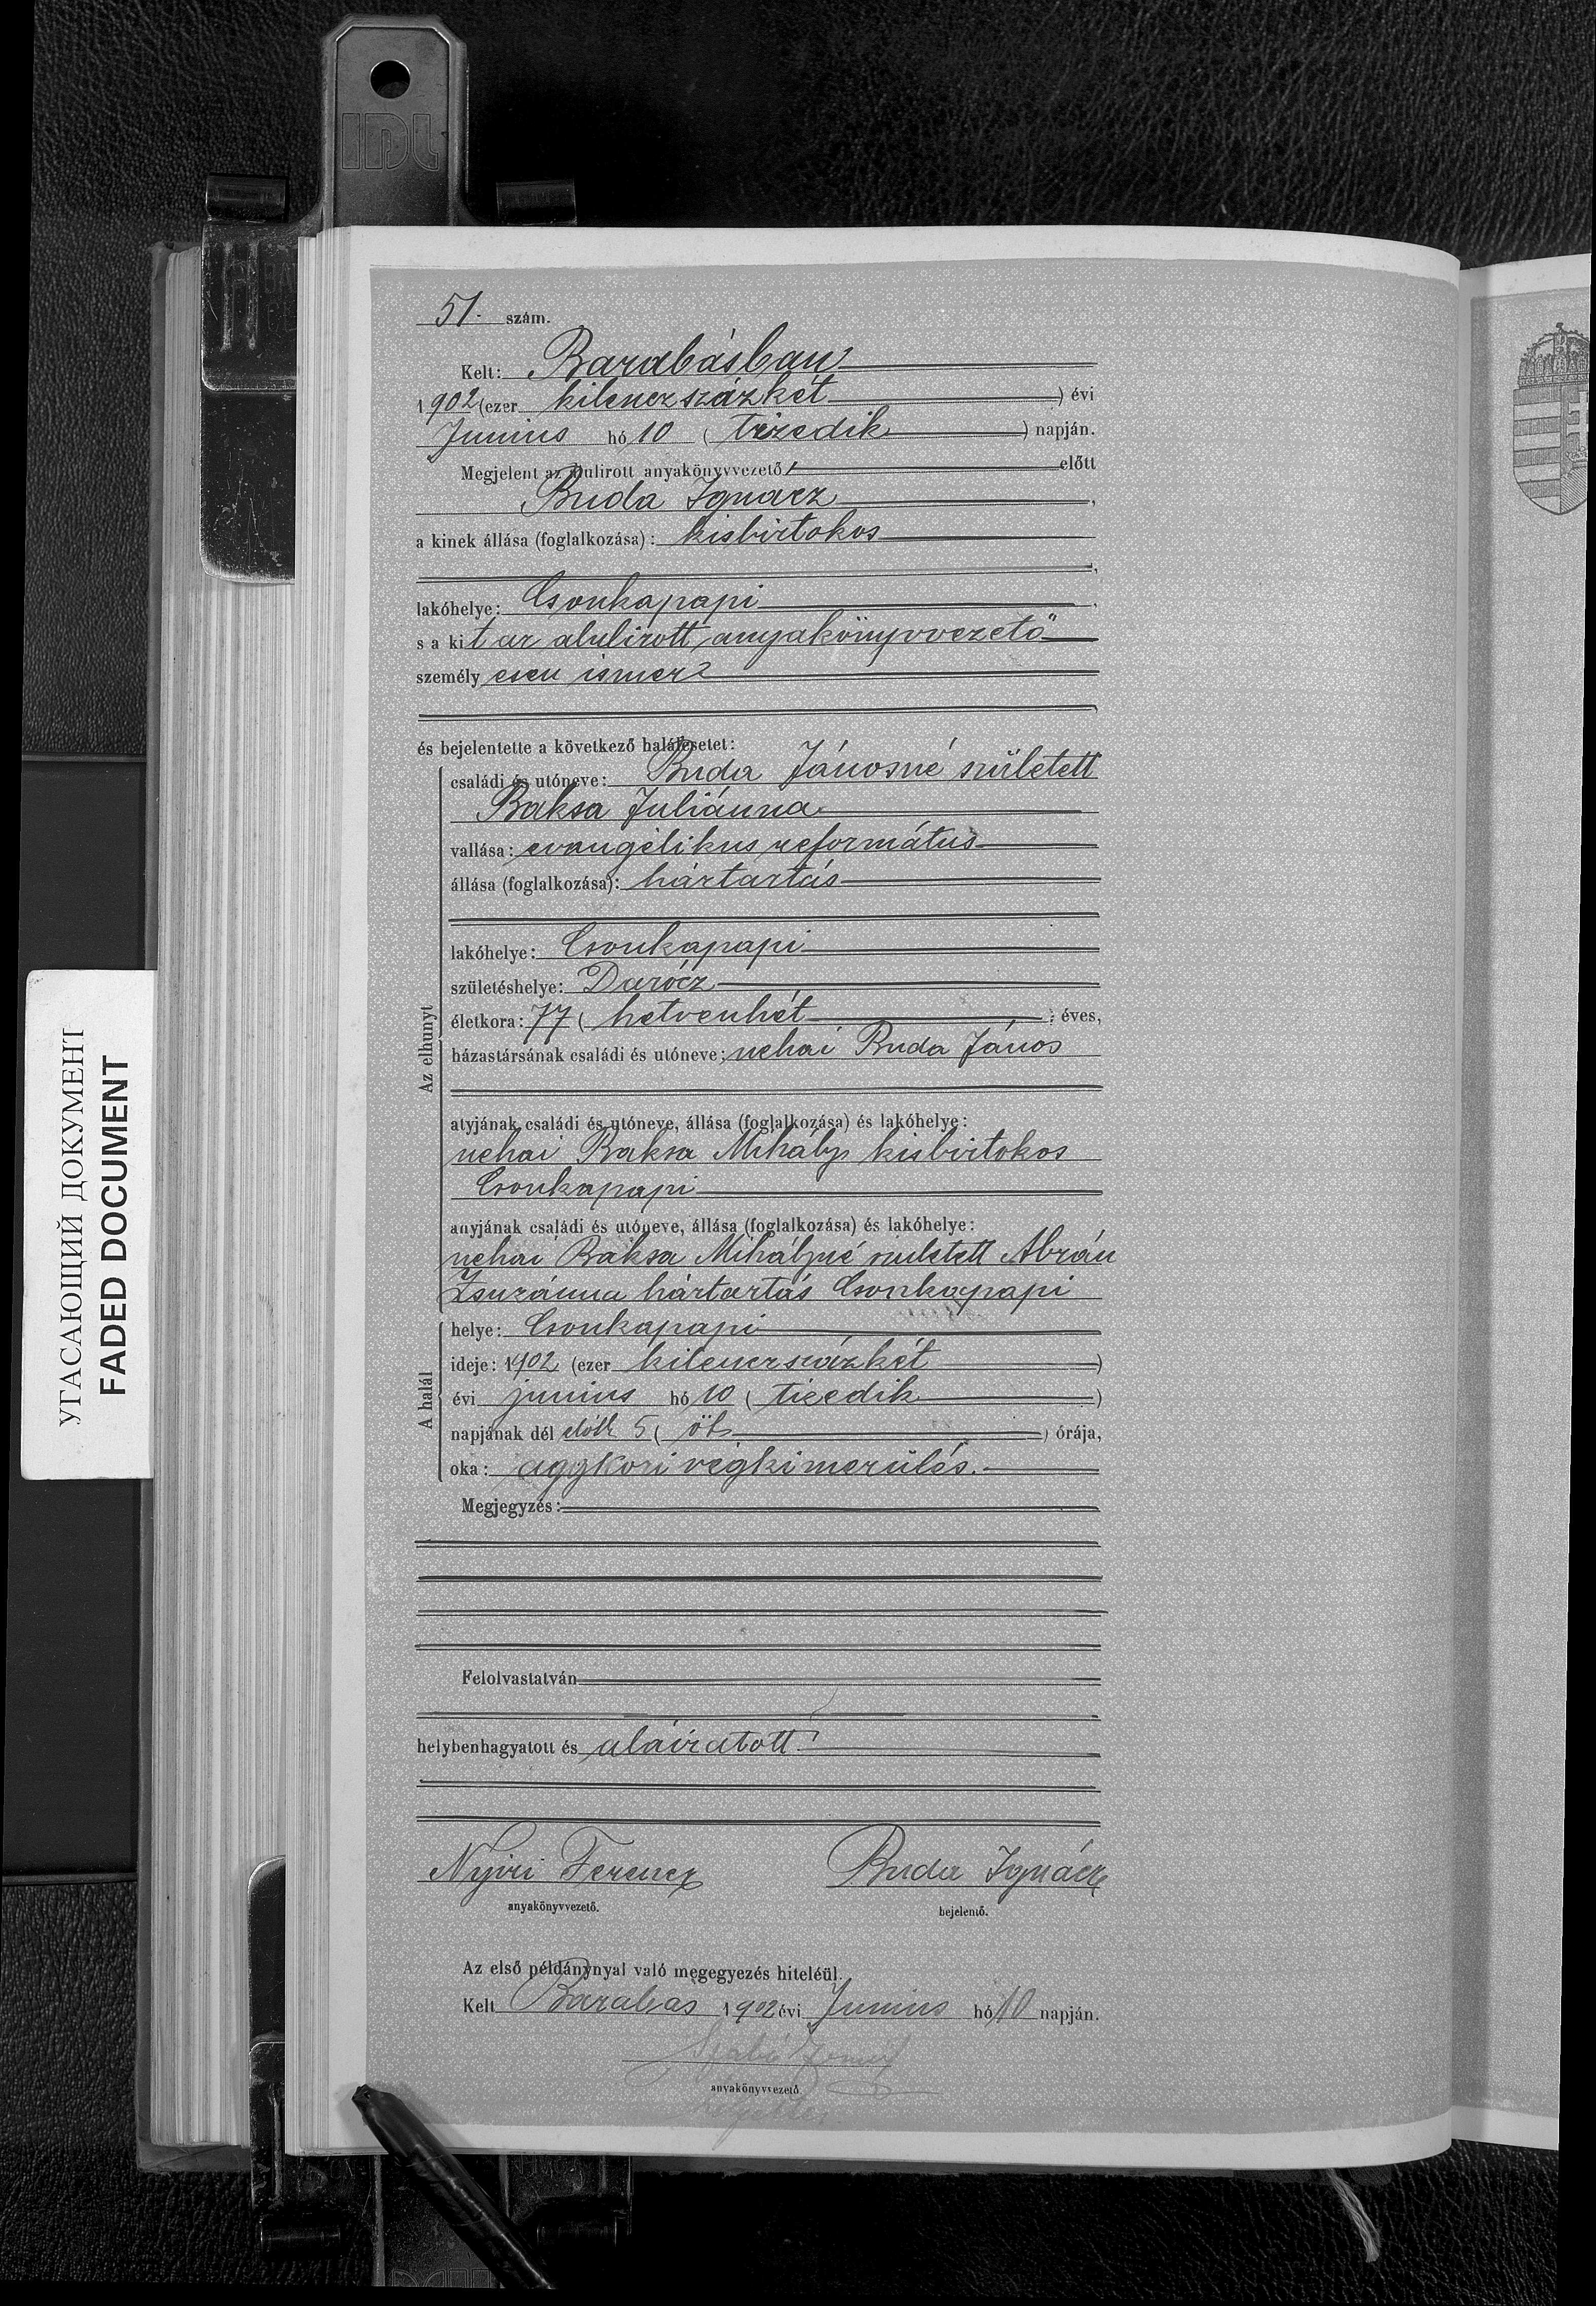 IDL
51. szám.
Kelt: Barabásban
1902 (ezer kilenczszázkét ) évi
Junius hó 10 ( tizedik ) napján.
Megjelent az alulirott anyakönyvvezető előtt
Buda Ignacz,
a kinek állása (foglalkozása): kisbirtokos
lakóhelye: Csonkapapi,
s a kit az alulirott anyakönyvvezető
személyesen ismer
és bejelentette a következő halálesetet:
Az elhunyt
családi és utóneve: Buda Jánosné született
Baksa Juliánna
vallása: evangélikus református
állása (foglalkozása): háztartás
lakóhelye: Csonkapapi
születéshelye: Darócz
életkora: 77 ( hetvenhét ) éves,
házastársának családi és utóneve: néhai Buda János
atyjának családi és utóneve, állása (foglalkozása) és lakóhelye:
néhai Baksa Mihály kisbirtokos
Csonkapapi
anyjának családi és utóneve, állása (foglalkozása) és lakóhelye:
néhai Baksa Mihályné született Abrán
Zsuzánna háztartás Csonkapapi
A halál
helye: Csonkapapi
ideje: 1902 (ezer kilenczszázkét )
évi junius hó 10 ( tizedik )
napjának dél előtt 5 ( öt ) órája,
oka: aggkori végkimerülés.
Megjegyzés:
Felolvastatván
helybenhagyatott és aláiratott!
Nyiri Ferencz Buda Ignácz
anyakönyvvezető. bejelentő.
Az első példánynyal való megegyezés hiteléül.
Kelt Barabás 1902 évi Junius hó 10 napján.
Szabó József
anyakönyvvezető
helyettes
УГАСАЮЩИЙ ДОКУМЕНТ
FADED DOCUMENT